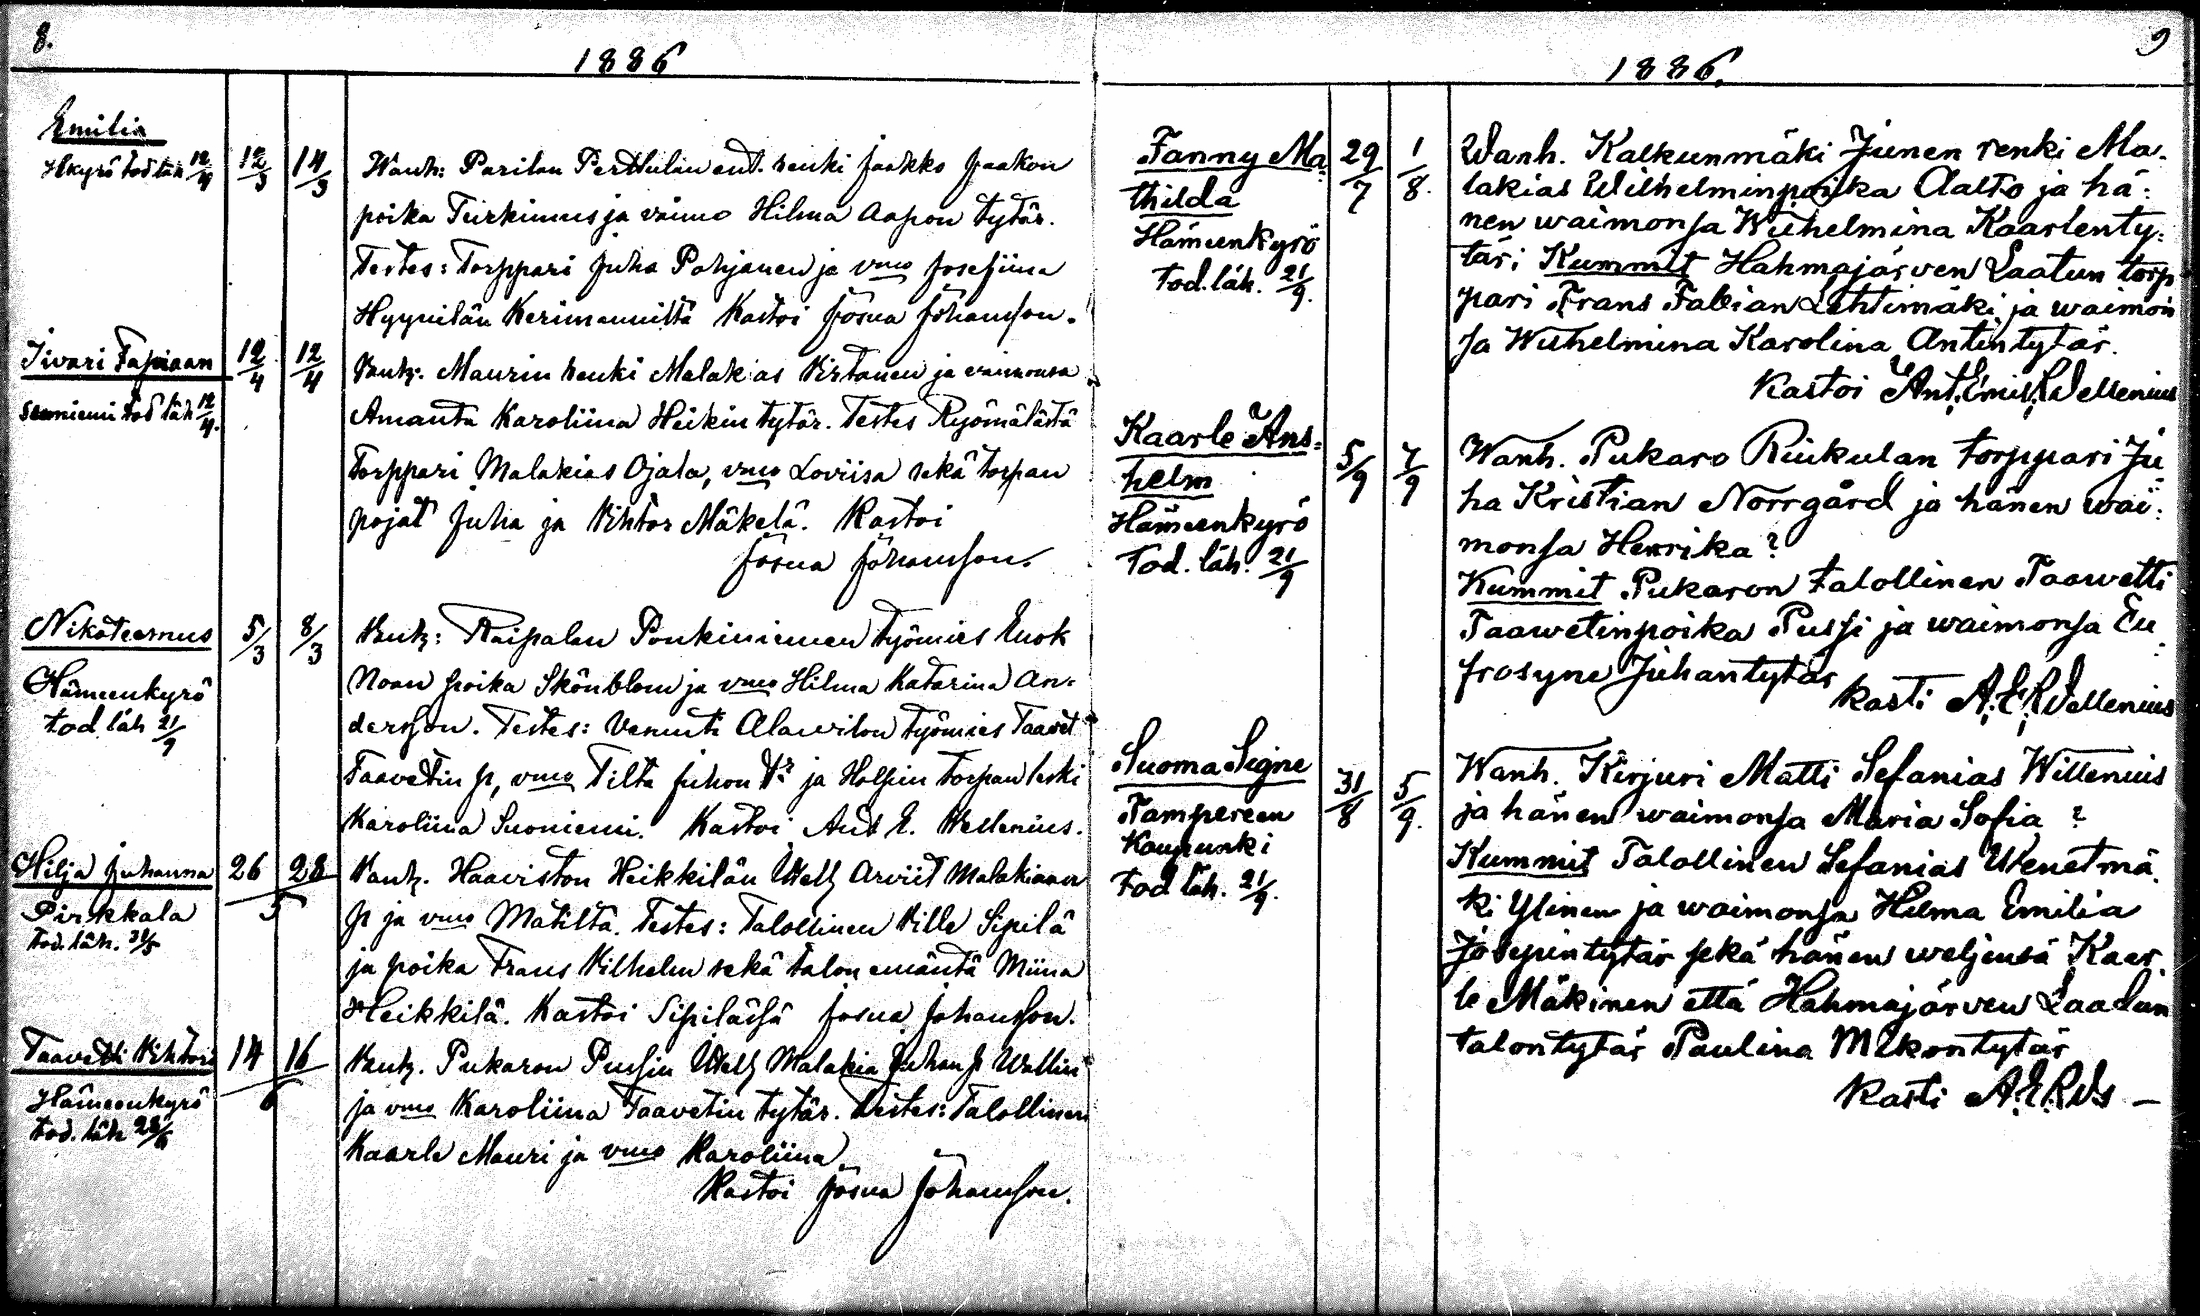 8.
1886
Emilia
Hkyrö tod läh 12/4
12/3
14/3
Wanh: Parilan Perttulan ent. renki Jaakko Jaakon
poika Turkimus ja vaimo Hilma Aapon tytär.
Testes: Torppari Juha Pohjanen ja vmo Josefiina
Hyynilän Kerimannilta Kastoi Josua Johansson.
Iivari Fapiaan
Suoniemi tod läh 12/4.
12/4
12/4
Vanh. Maurin renki Malakias Virtanen ja vaimonsa
Amanta Karoliina Heikin tytär. Testes Ryömälästä
Torppari Malakias Ojala, vmo Loviisa sekä torpan
pojat Juha ja Vihtor Mäkelä. Kastoi
Josua Johansson.
Nikoteemus
Hämeenkyrö
tod läh 21/9
5/3
8/3
Vanh: Raipalan Ponkiniemen työmies Enok
Noan poika Skönblom ja vmo Hilma Katarina An-
dersson. Testes: Venuti Alawilon työmies Taavet
Taavetin p, vmo Tilta Juhon tr ja Holpin torpan leski
Karoliina Suoniemi. Kastoi Ant E. Wellenius.
Hilja Juhanna
Pirkkala
Tod. läh. 31/5
26 28
5
Vanh. Haaviston Heikkilän Arviit Malakiaan
p ja vmo Matilta. Testes: Talollinen Ville Sipilä
ja poika Frans Vilhelm sekä talon emäntä Miina
Heikkilä. Kastoi Sipilässä Josua Johansson.
Taavetti Vihtori
Hämeenkyrö
tod. läh 28/6
14 16
6
Vanh. Pukaron Pussin Malakia Juhan p Wallin
ja vmo Karoliina Taavetin tytär. Testes: Talollinen
Kaarle Mauri ja vmo Karoliina
Kastoi Josua Johansson.
9
1886.
Fanny Ma-
thilda
Hämeenkyrö
Tod. läh. 21/9.
29/7
1/8.
Wanh. Kalkunmäki Junen renki Ma-
lakias Wilhelminpoika Aalto ja hä-
nen waimonsa Wilhelmina Kaarlenty-
tär; Kummit Hahmajärven Laatun torp
pari Frans Fabian Lehtimäki ja waimon
sa Wilhelmina Karolina Antintytär.
Kastoi Ant. Emil. Wellenius
Kaarle Ans-
helm
Hämeenkyrö
Tod. läh. 21/9
5/9
7/9
Wanh. Pukaro Riukulan torppari Ju-
ha Kristian Norrgård ja hänen wai-
monsa Henrika?
Kummit Pukaron talollinen Taawetti
Taawetinpoika Pussi ja waimonsa Eu-
frosyne Juhantytär
Kasti A. E. Wellenius
Suoma Signe
Tampereen
Kaupunki
Tod läh. 21/9.
31/8
5/9.
Wanh. Kirjuri Matti Sefanias Willenius
ja hänen waimonsa Maria Sofia ?
Kummit Talollinen Sefanias Wenetmä-
ki Ylinen ja waimonsa Hilma Emilia
Josepintytär sekä hänen weljensä Kaar-
le Mäkinen että Hahmajärven Laadun
talontytär Paulina Mikontytär
Kasti A. E. Ws –